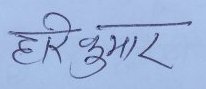 हरि कुमार